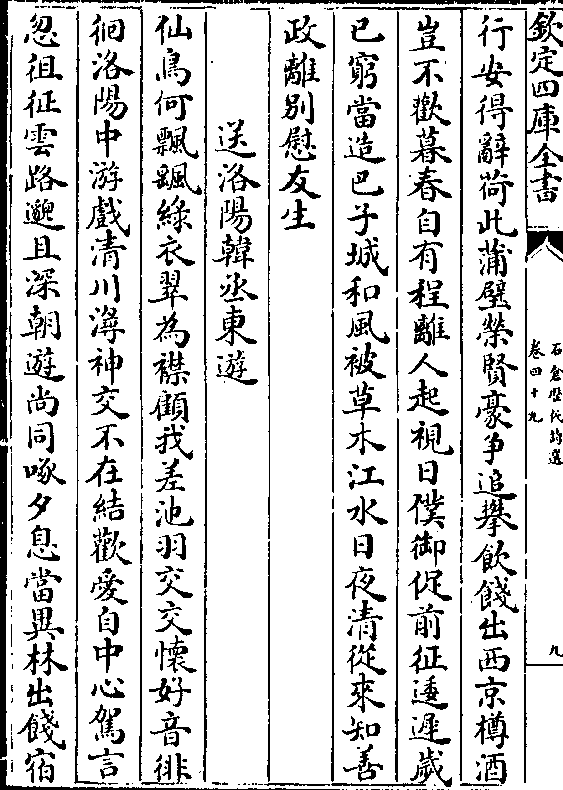 欽定四庫全書
石倉歷代詩選
卷四十九
九
行安得辭荷此蒲璧榮賢豪爭追攀飲餞出西京樽酒
豈不歡暮春自有程離人起視日僕御促前征逶遲歲
已窮當造巴子城和風被草木江水日夜清從來知善
政離別慰友生
送洛陽韓丞東遊
仙鳥何飄颻綠衣翠為襟顧我差池羽交交懷好音徘
徊洛陽中游戲清川潯神交不在結歡愛自中心駕言
忽徂征雲路邈且深朝遊尚同啄夕息當異林出餞宿